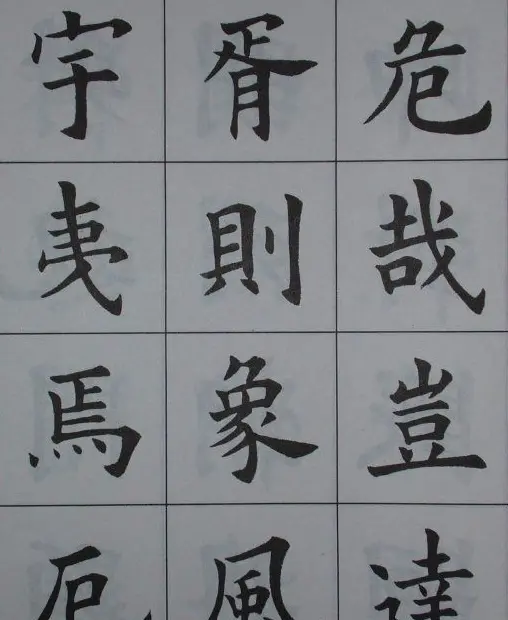 危哉豈達
胥則象風
宇焉